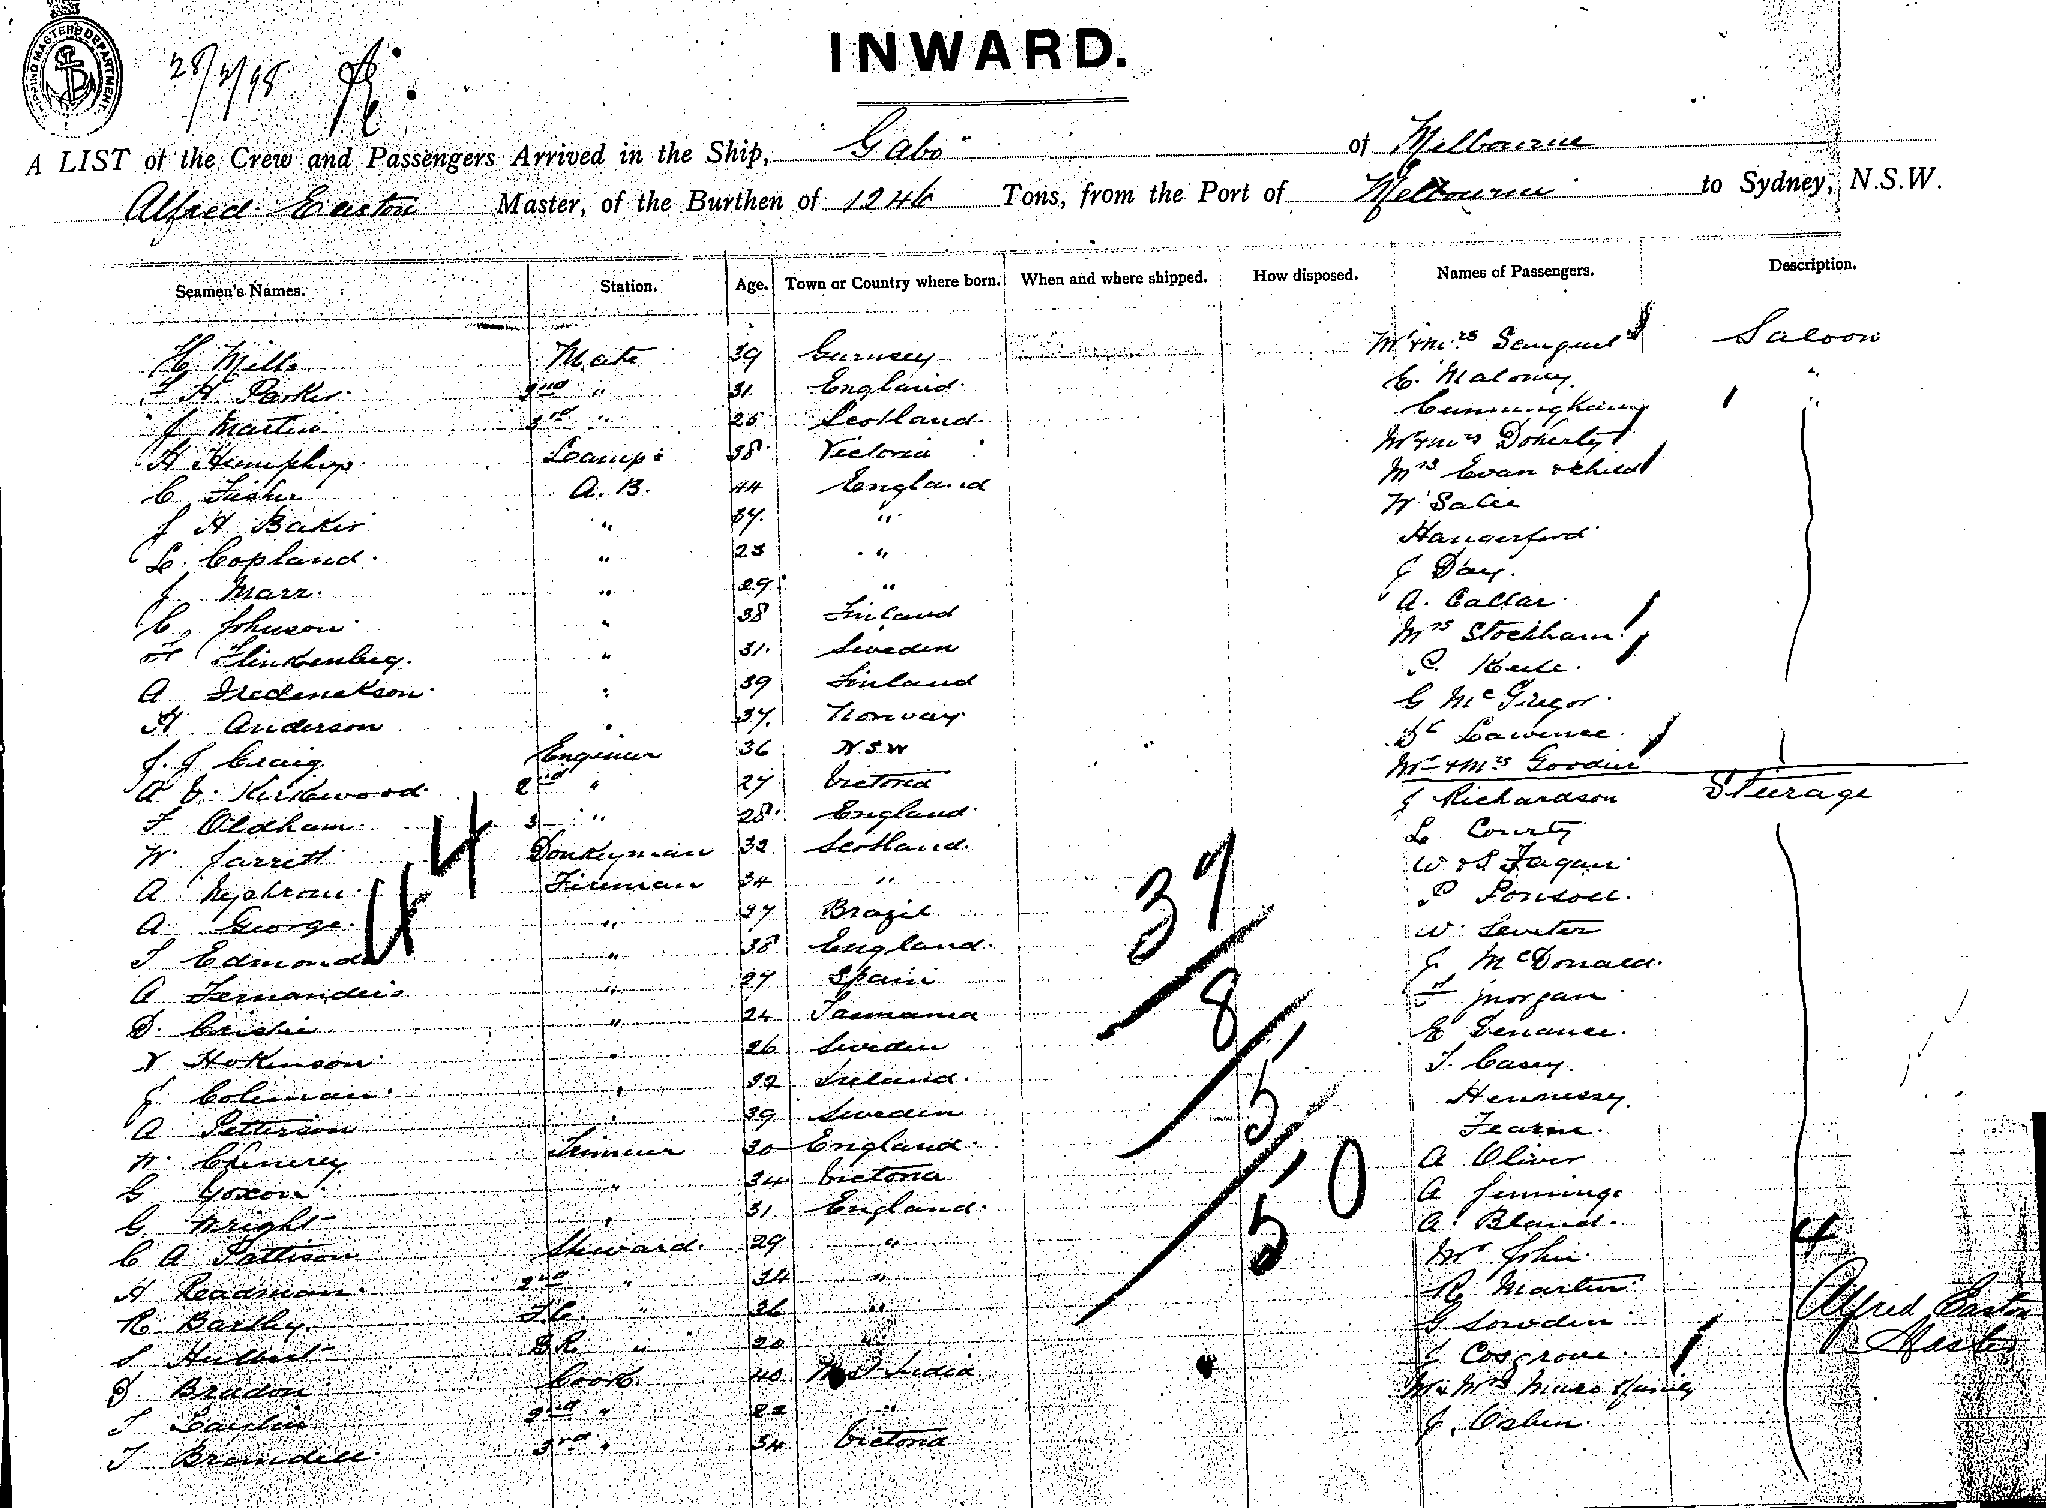 SHIPPING MASTER'S DEPARTMENT.
28/2/98
INWARD.
A LIST of the Crew and Passengers Arrived in the Ship, Gabo of Melbourne
Alfred Easton Master, of the Burthen of 1246 Tons, from the Port of Melbourne to Sydney, N.S.W.
Seamen's Names. Station. Age. Town or Country where born. When and where shipped. How disposed. Names of Passengers. Description.
H Mills Mate 39 Gurnsey Mr & Mrs Saloon
H Parker 2nd " 31 England E. Maloney "
J Martin 3rd " 25 Scotland Cunningham "
H Humphrys Lamps 38 Victoria Mr & Mrs Doherty
C Fisher A.B. 44 England Mrs Evan & child
J H Baker " 37 " W
L Copland " 23 " Hangerford
J Marr " 29 " J Day
C Johnson " 38 Finland A. Callar
F Flinkenberg " 31 Sweden Mrs Stockham
A Frederickson " 39 Finland P.
H Anderson " 37 Norway G McGregor
J. J Craig Engineer 36 N.S.W Dr Lawrence
A J. Kirkwood 2nd " 27 Victoria Mr & Mrs Goodier
F Oldham 3 " 28 England J Richardson Steerage
W. Jarrett Donkeyman 32 Scotland L County
A Nystrom Fireman 34 " W & S Fagan
A George " 27 Brazil P Ponsoll
44
37
T Edmonds " 38 England W. Leviter
A Fernandeis " 27 Spain J. McDonald
D. Cristie " 24 Tasmania Morgan
8
N Hokinson " 26 Sweden E
J Coleman " 32 Ireland T. Casey
A Petterson " 39 Sweden Hennessy
5
W. Chinery Trimmer 30 England Fearne
G Yoxon " 34 Victoria A Oliver
50
G Wright " 31 England A Jennings
C A Pattison Steward 29 " A. Bland
H Readman 2nd " 34 " Mr John
4
R Bartley F.C. " 36 " R Martin
S Hulbert B.R. " 20 " G Sowden
Alfred Easton
Master
D Bradon Cook 40 W.I. India J Cosgrove
T 2nd " 22 " Mr & Mrs Munro & family
T Brundell 3rd " 34 Victoria J.